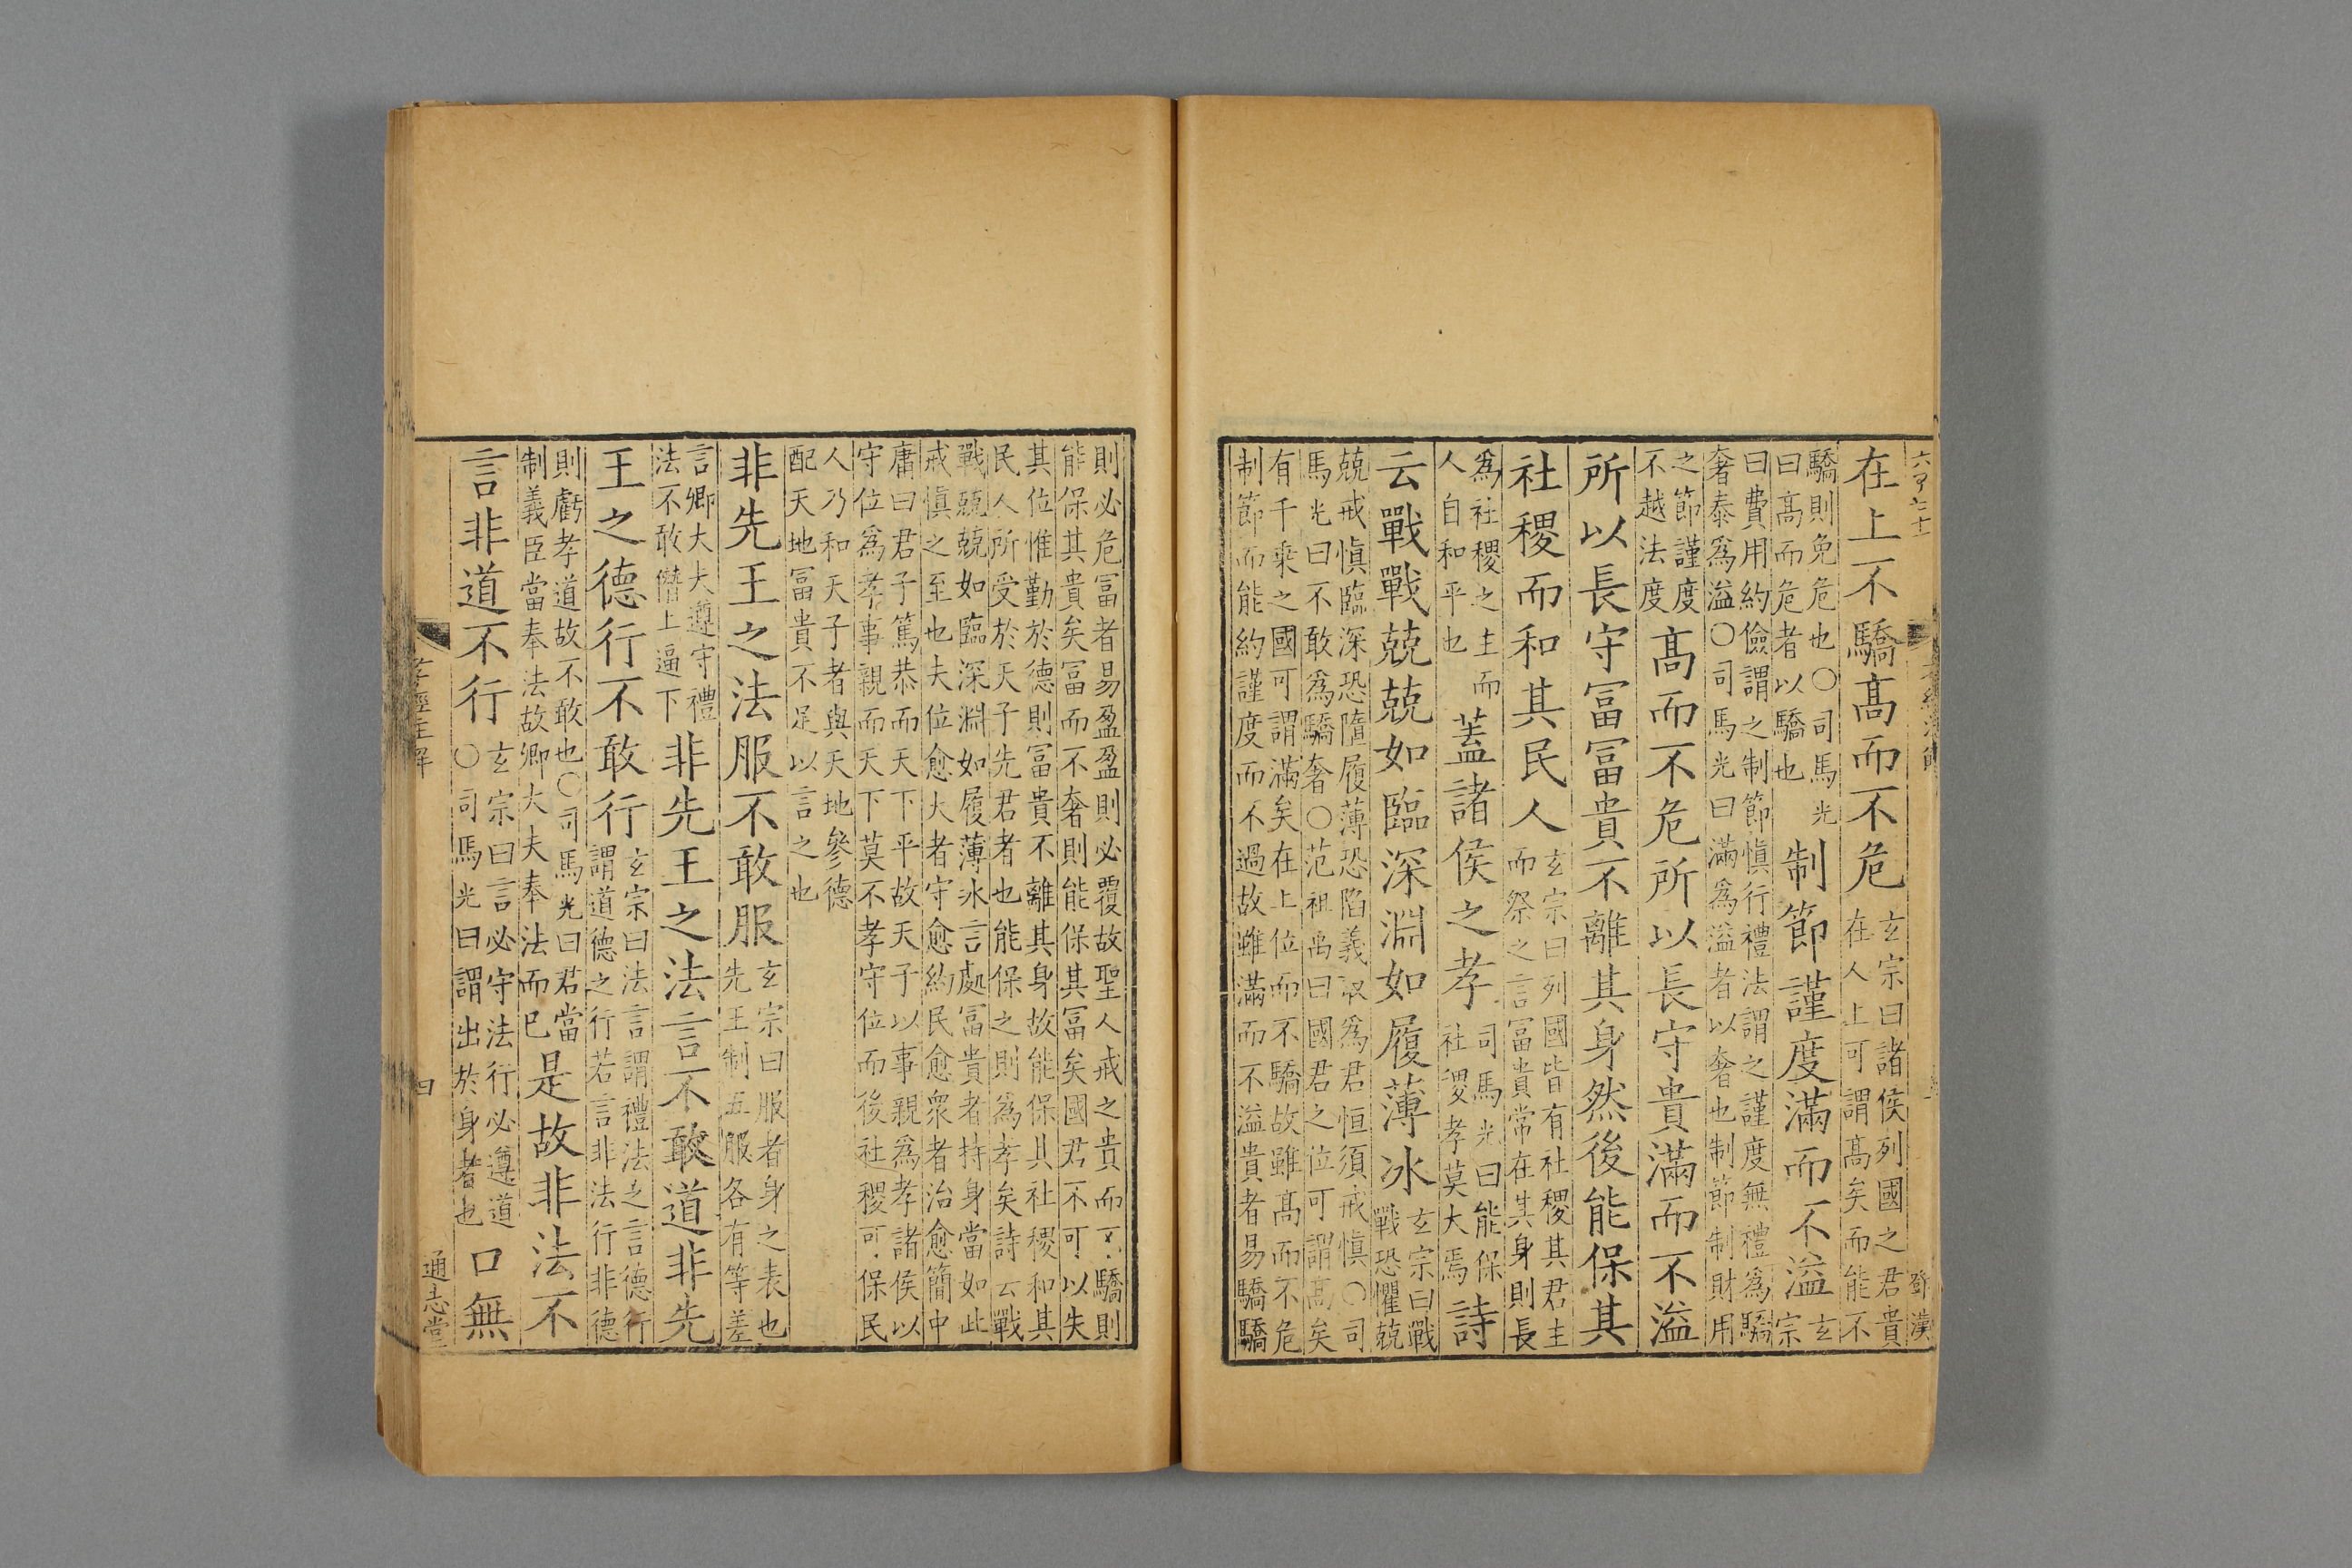 在上不驕高而不危玄宗曰諸侯列國之君貴
在人上可謂高矣而能不
驕則免危也○司馬光
曰高而危者以驕也制節謹度滿而不溢玄
宗
曰費用約儉謂之制節慎行禮法謂之謹度無禮爲驕
奢泰爲溢○司馬光曰滿爲溢者以奢也制節制財用
之節謹度
不越法度高而不危所以長守貴滿而不溢
所以長守冨冨貴不離其身然後能保其
社稷而和其民人玄宗曰列國皆有社稷其君主
而祭之言冨貴常在其身則長
爲社稷之主而
人自和平也蓋諸侯之孝司馬光曰能保
社稷孝莫大焉詩
云戰戰兢兢如臨深淵如履薄冰玄宗曰戰
戰恐懼兢
兢戒慎臨深恐隨履薄恐陷義取爲君恒須戒慎○司
馬光曰不敢爲驕奢○范祖禹曰國君之位可謂高矣
有千乗之國可謂滿矣在上位而不驕故雖高而不危
制節而能約謹度而不過故雖滿而不溢貴者易驕驕
則必危冨者易盈盈則必覆故聖人戒之貴而不驕則
能保其貴矣冨而不奢則能保其冨矣國君不可以失
其位惟勤於德則冨貴不離其身故能保其社稷和其
民人所受於天子先君者也能保之則爲孝矣詩云戰
戰兢兢如臨深淵如履薄冰言處冨貴者持身當如此
戒慎之至也夫位愈大者守愈約民愈衆者治愈簡中
庸曰君子篤恭而天下平故天子以事親爲孝諸侯以
守位爲孝事親而天下莫不孝守位而後社稷可保民
人乃和天子者與天地參德
配天地冨貴不足以言之也
非先王之法服不敢服玄宗曰服者身之表也
先王制五服各有等差
言卿大夫遵守禮
法不敢僭上逼下非先王之法言不敢道非先
王之德行不敢行玄宗曰法言謂禮法之言德行
謂道德之行若言非法行非德
則虧孝道故不敢也○司馬光曰君當
制義臣當奉法故卿大夫奉法而已是故非法不
言非道不行玄宗曰言必守法行必遵道
○司馬光曰謂出於身者也口無
通志堂